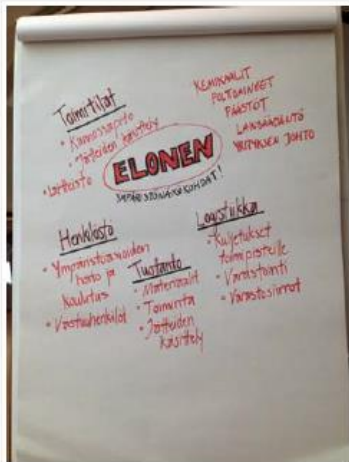 Toimitilat
• Kunnossapito
• Jätteiden käsittely
• Laitteisto
KEMIKAALIT
POLTTOAINEET
PÄÄSTÖT
LAINSÄÄDÄNTÖ
YRITYKSEN JOHTO
ELONEN
YMPÄRISTÖNÄKÖKOHDAT!
Henkilöstö
• Ympäristöasioiden
hoito ja
koulutus
• Vastuuhenkilöt
Tuotanto
• Materiaalit
• Toiminta
• Jätteiden
käsittely
Logistiikka
• Kuljetukset
toimipisteille
• Varastointi
• Varastosiirrot